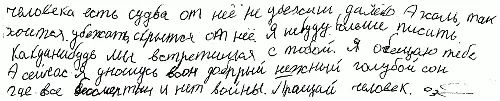 человека есть судва от неё не убежиш далеко А жаль, так
хочится убежать скрытся от неё. Я небуду больше писать.
Какданибудь мы встретимся с тобой. Я обещаю тебе
А сейчас я уношусь в он добрый нежный голубой сон
где все бессмертны и нет войны. Прощай человек.